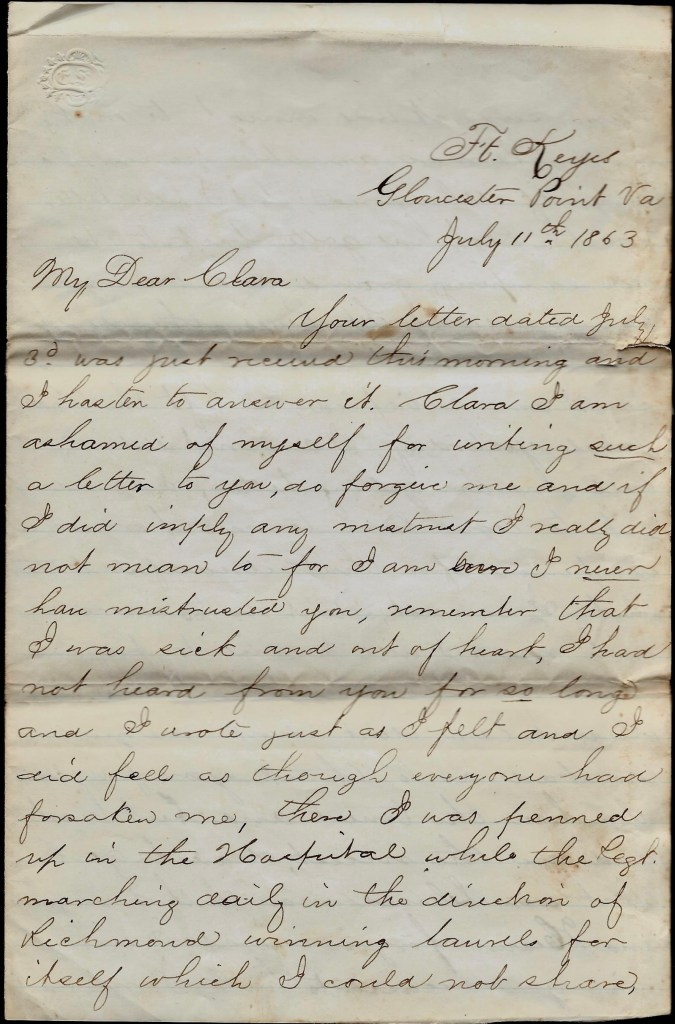 Ft. Keyes
Gloucester Point Va
July 11th 1863
My Dear Clara
Your letter dated July
3d was just received this morning and
I hasten to answer it. Clara I am
ashamed of myself for writing such
a letter to you, do forgive me and if
I did imply any mistrust I really did
not mean to for I am sure I never
have mistrusted you, remember that
I was sick and out of heart, I had
not heard from you for so long
and I wrote just as I felt and I
did feel as though everyone had
forsaken me, there I was penned
up in the Hospital while the Regt.
marching daily in the direction of
Richmond winning laurels for
itself which I could not share,